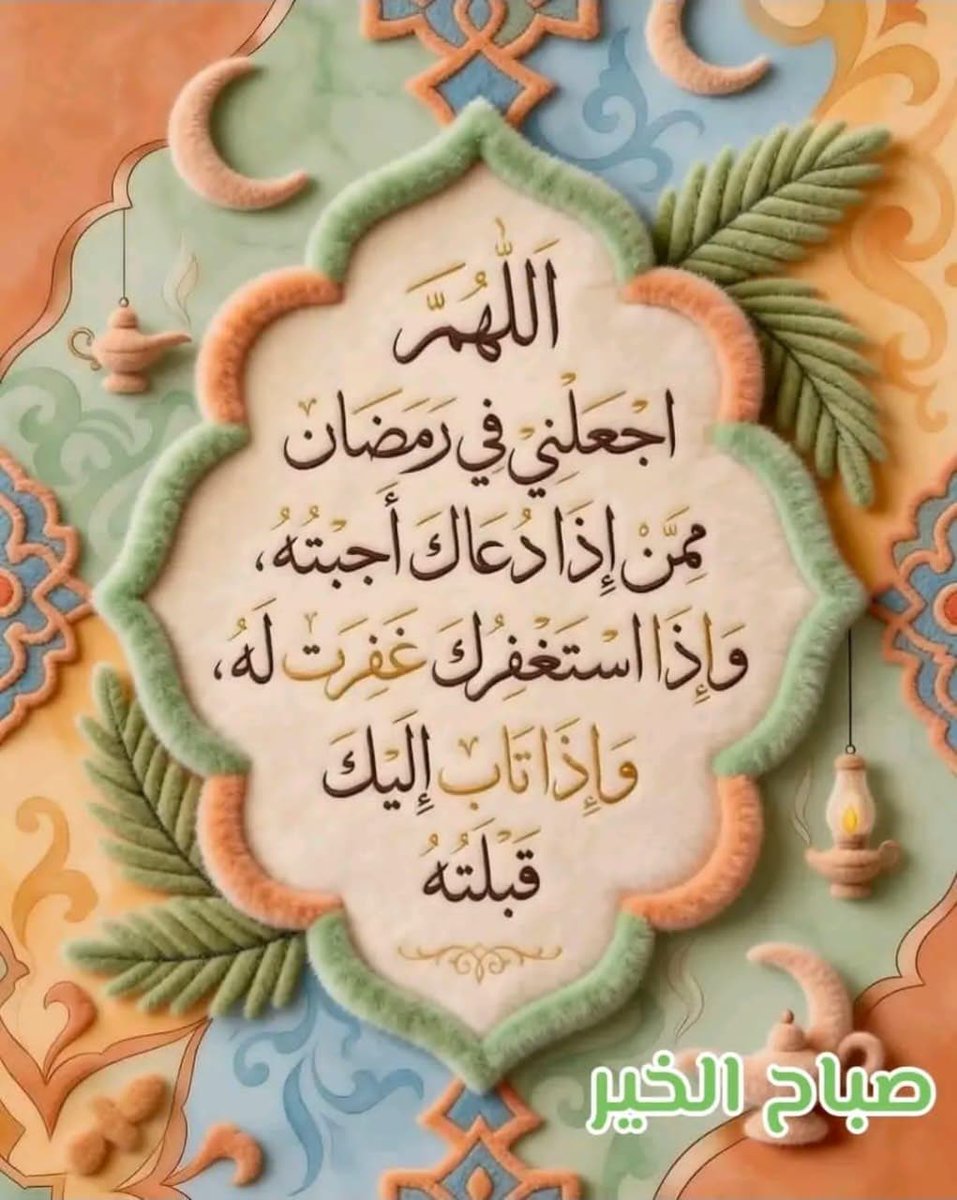 اَللّٰهُمَّ
اجْعَلْنِيْ فِي رَمَضَان
مِمَّنْ إِذَا دُعَاكَ أَجبْتُهُ،
وَإِذَا اسْتَغْفِرُكَ غَفِرَت لَهُ،
وَإِذَا تَاب إِلَيْكَ
قَبْلَتُهُ
صباح الخير